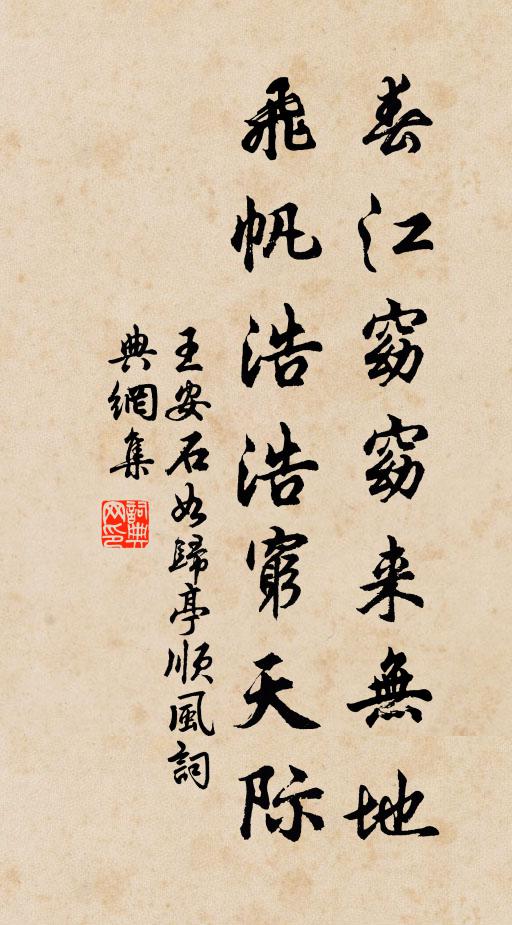 春江窈窈来無地
飛帆浩浩窮天际
王安石如歸亭順風詞
典網集
詞典網印